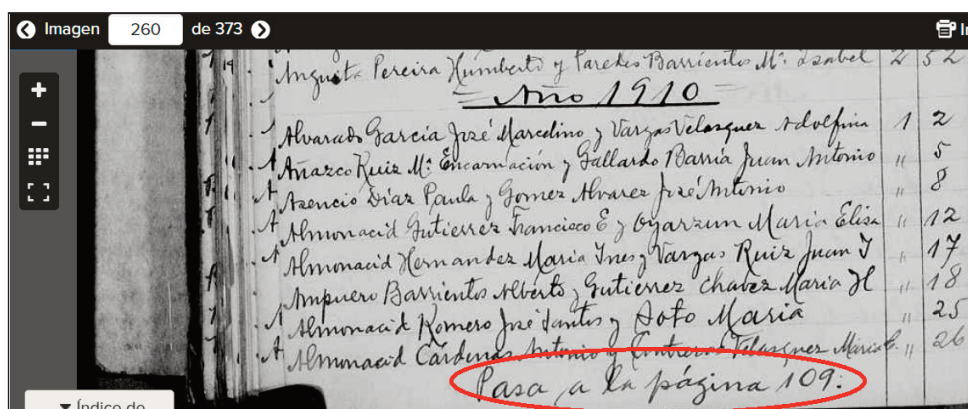 Imagen 260 de 373
Angusta Pereira Humberto y Paredes Barrientos Mª Isabel 2 52
Año 1910
Alvarado Garcia José Marcelino y Vargas Velasquez Adolfina 1 2
Añazco Ruiz Mª Encarnación y Gallardo Barria Juan Antonio " 5
Asencio Díaz Paula y Gomez Alvarez José Antonio " 8
Almonacid Gutierrez Francisco E y Oyarzun Maria Elisa " 12
Almonacid Hernandez Maria Ines y Vargas Ruiz Juan J " 17
Ampuero Barrientos Alberto y Gutierrez Chavez Maria H " 18
Almonacid Romero José Santos y Soto Maria " 25
Almonacid Cárdenas Antonio y Contreras Velasquez Maria " 26
Pasa a la página 109:
Índice de